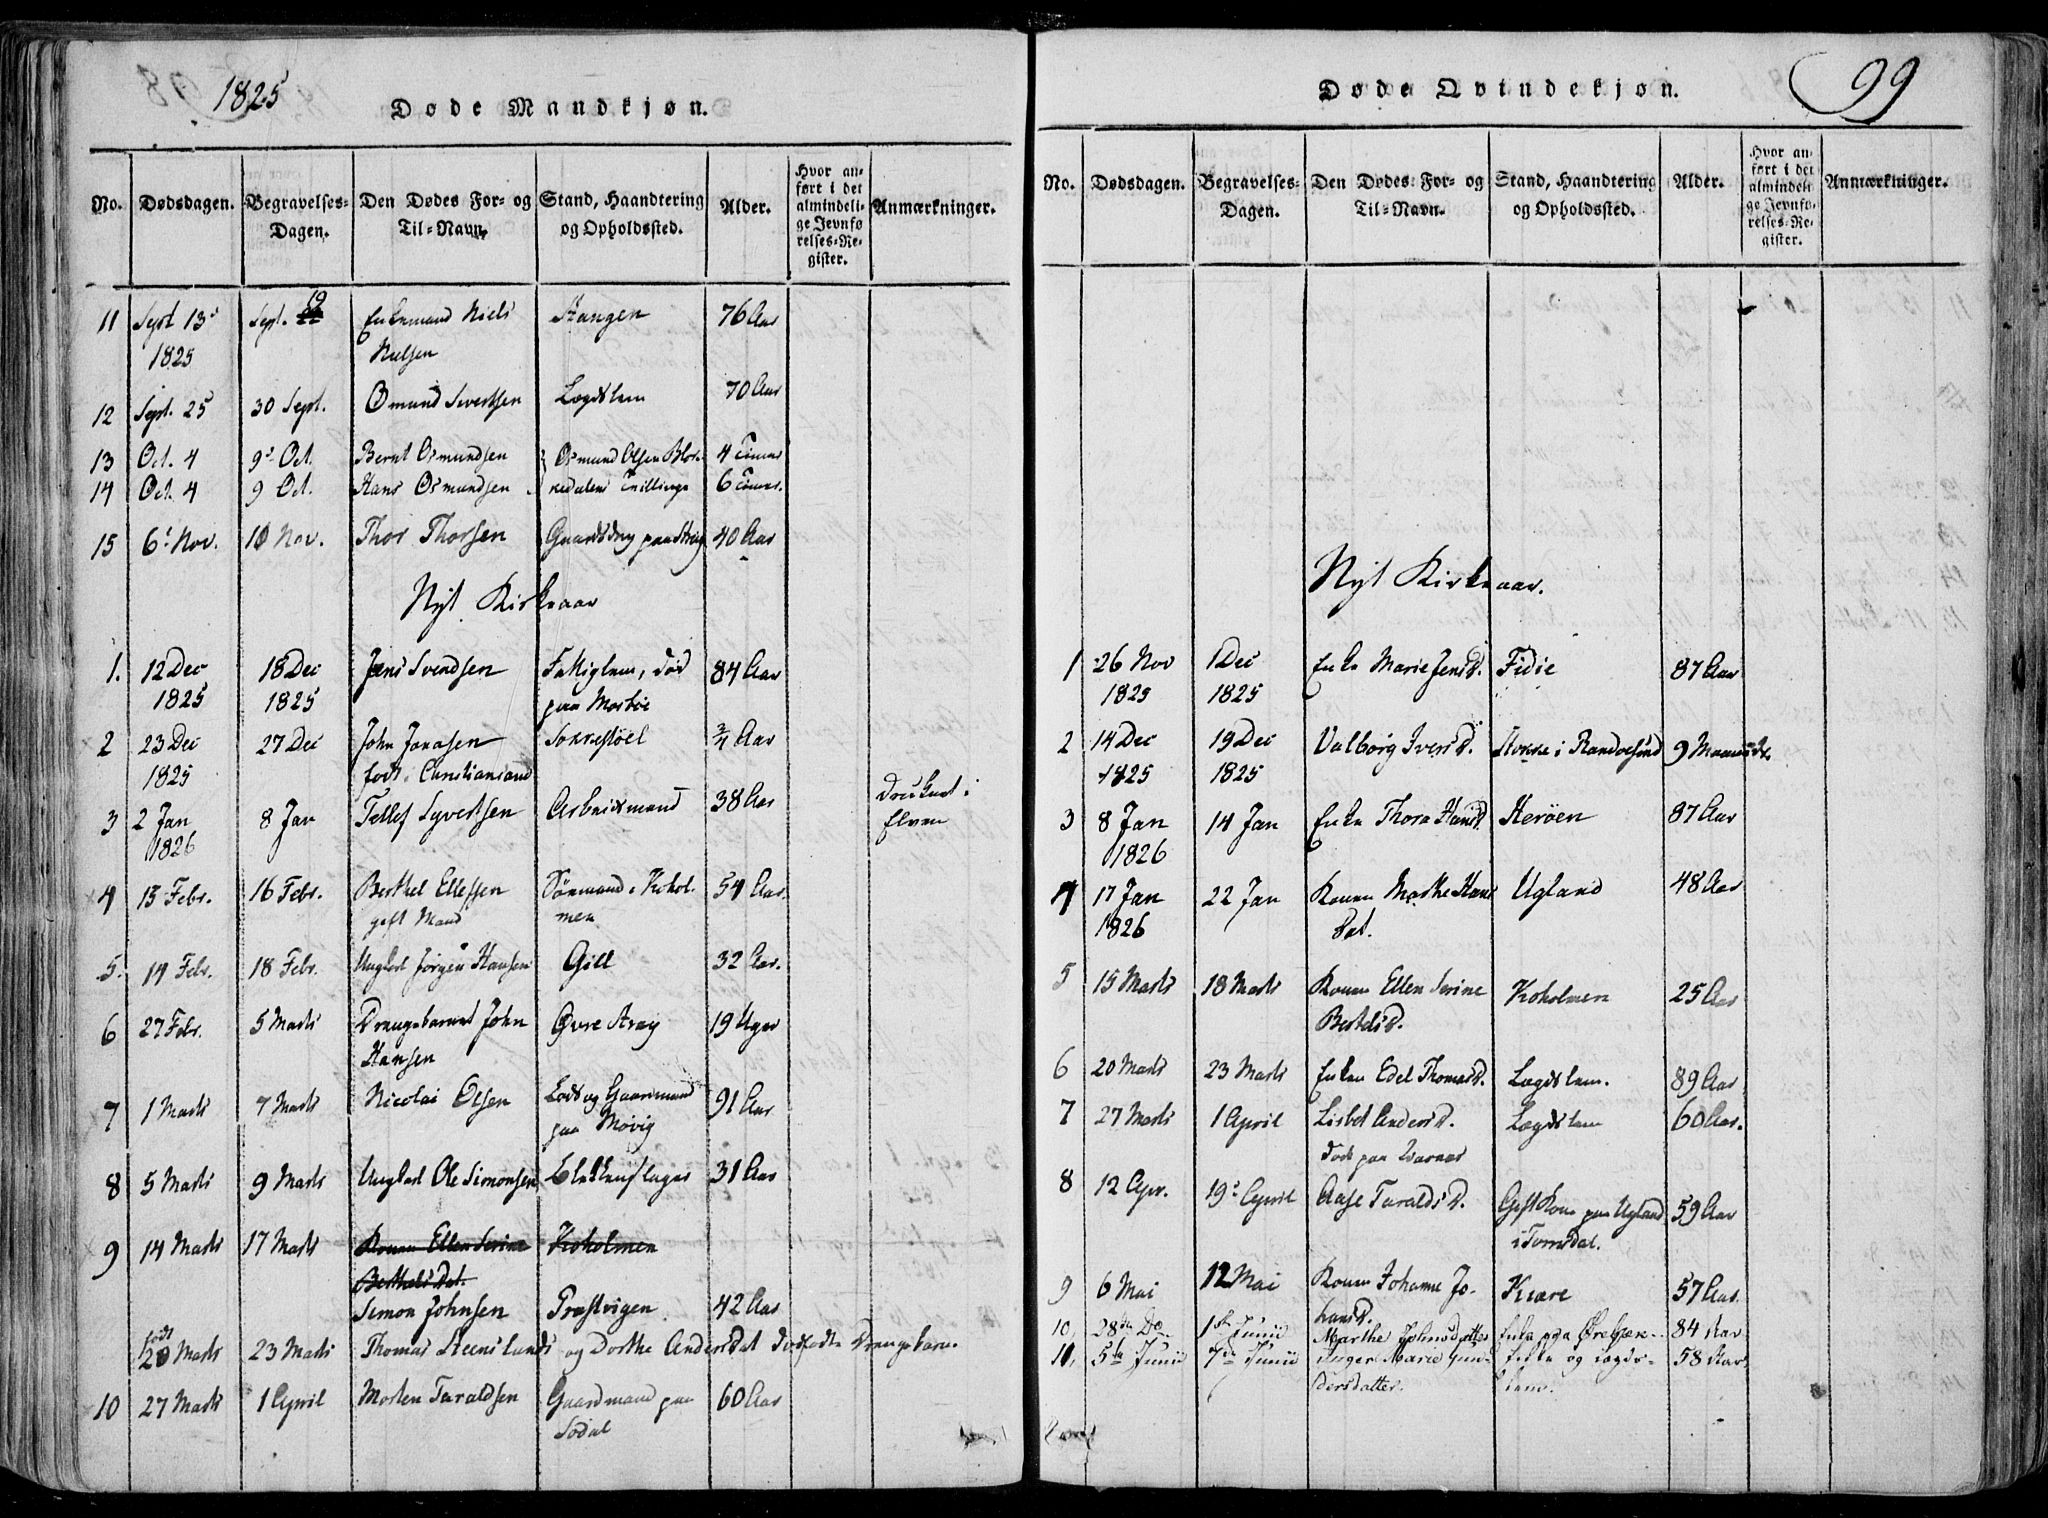 1825
Døde Mandkjøn.
No.
Dødsdagen.
Begravelses-
Dagen.
Den Dødes For- og
Til-Navn.
Stand, Haandtering
og Opholdssted.
Alder.
Hvor an-
ført i det
almindeli-
ge Jevnfø
relses-Re-
gister.
Anmærkninger.
11 Sept 13 Sept. 19 Enkemand Niels Stangen 76 Aar
1825 Nielsen
12 Sept. 25 30 Sept. Omund Sivertsen Lægdslem 70 Aar
13 Oct. 4 9 Oct. Bernt Osmundsen Osmund Olsen 4 Timer
14 Oct. 4 9 Oct. Hans Osmundsen Tvillinge 6 Timer.
15 6 Nov. 10 Nov. Thor Thorsen 40 Aar
Nyt Kirkeaar
1. 12 Dec 18 Dec Jens Svendsen Fattiglem, død 84 Aar
1825 1825 paa Mosbie
2 23 Dec 27 Dec John Jonasen 3/4 Aar
1825 født i Christiansand
3 2 Jan 8 Jan Tellef Syvertsen Arbeidsmand 38 Aar Druknet i
1826 Elven
4 13 Febr. 16 Febr. Berthel Ellefsen Sømand Kohol- 54 Aar.
gift Mand men
5. 14 Febr. 18 Febr. Ungkarl Jørgen Hansen Gill 32 Aar.
6 27 Febr. 5 Marts Drengebarnet John Øvre Aray 19 Uger
Hansen
7 1 Marts 7 Marts Nicolai Olsen Lods og Gaardmand 91 Aar
paa Møvig
8 5 Marts 9 Marts Ungkarl Ole Simonsen 31 Aar
9 14 Marts 17 Marts Konen Ellen Serine Koholmen
Berthelsdat.
Simon Johnsen Præstvigen 42 Aar
født
20 Marts 23 Marts Thomas Steenslunds og Dorthe Andersdat dødfødte Drengebarn.
10 27 Marts 1 April Morten Taraldsen Gaardmand paa 60 Aar
Sødal
Døde Qvindekjøn.
99
No.
Dødsdagen.
Begravelses-
Dagen.
Den Dødes For- og
Til-Navn.
Stand, Haandtering
og Opholdssted.
Alder.
Hvor an-
ført i det
almindeli-
ge Jevnfø-
relses-Re-
gister.
Anmærkninger.
Nyt Kirkeaar.
1 26 Nov 1 Dec Enke Marie Jensd. Fidie 87 Aar
1825 1825
2 14 Dec 19 Dec Valborg Iversd. i Randøesund 9 Maaneder
1825 1825
3 8 Jan 14 Jan Enke Thora Hansd. Herøen 87 Aar
1826
4 17 Jan 22 Jan Konen Marthe Hans Ugland 48 Aar
1826 Dat.
5 15 Marts 18 Marts Konen Ellen Serine Koholmen 25 Aar
Bertelsd.
6 20 Marts 23 Marts Enken Edel Thomasd. Lægdslem. 89 Aar
7 27 Marts 1 April Lisbet Andersd. Lægdslem 60 Aar.
død paa
8 12 Apr. 19 April Aase Taraldsd. Gift Kone paa Ugland 59 Aar
i Tvedsdal.
9 6 Mai 12 Mai Konen Johanne Jo- Kiære 57 Aar.
hansd.
10, 28de Do 1ste Junii Marthe Johnsdatter Enke paa 84 Aar
11, 5te Junii 7de Junii Inger Marie Gun- Enke og Lægds- 58 Aar
dersdatter. lem.